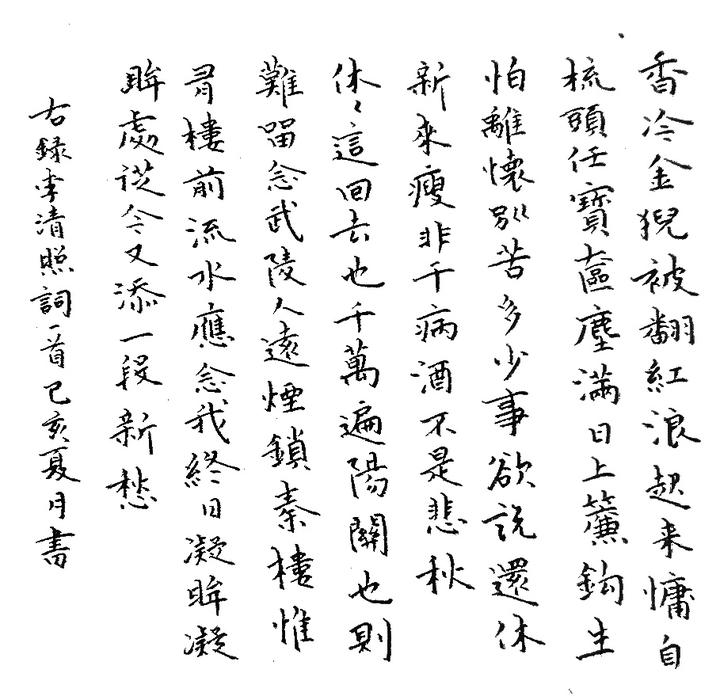 香冷金猊被翻紅浪起来慵自
梳頭任寶奩塵滿日上簾鈎生
怕離懷別苦多少事欲説還休
新来瘦非干病酒不是悲秋
休々這回去也千萬遍陽關也則
難留念武陵人遠煙鎖秦樓惟
有樓前流水應念我終日凝眸凝
眸處從今又添一段新愁
右録李清照詞一首己亥夏月書